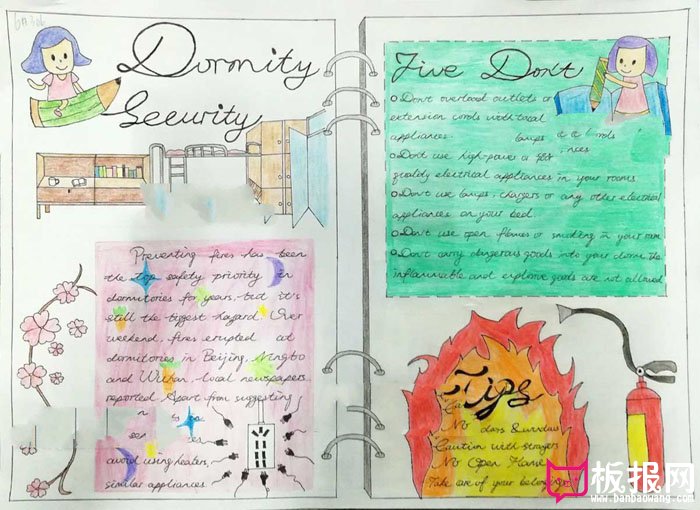 Dormity
Security
Preventing fires has been
the top safety priority in
dormitories for years, but it's
still the biggest hazard. Over
weekend, fires erupted at
dormitories in Beijing, Ningbo
and Wuhan, local newspapers
reported. Apart from suggesting
avoid using heaters,
similar appliances
Five Don't
Don't overload outlets or
extension cords with total
appliances.
Don't use high-power or
quality electrical appliances in your rooms
Don't use lamps, chargers or any other electrical
appliances on your bed.
Don't use open flames or smoking in your room
Don't carry dangerous goods into your dorm. The
inflammable and explosive goods are not allowed
Tips
No doors & windows
Caution with strangers
No Open
Take care of your belongings
板报网
www.banbaowang.com